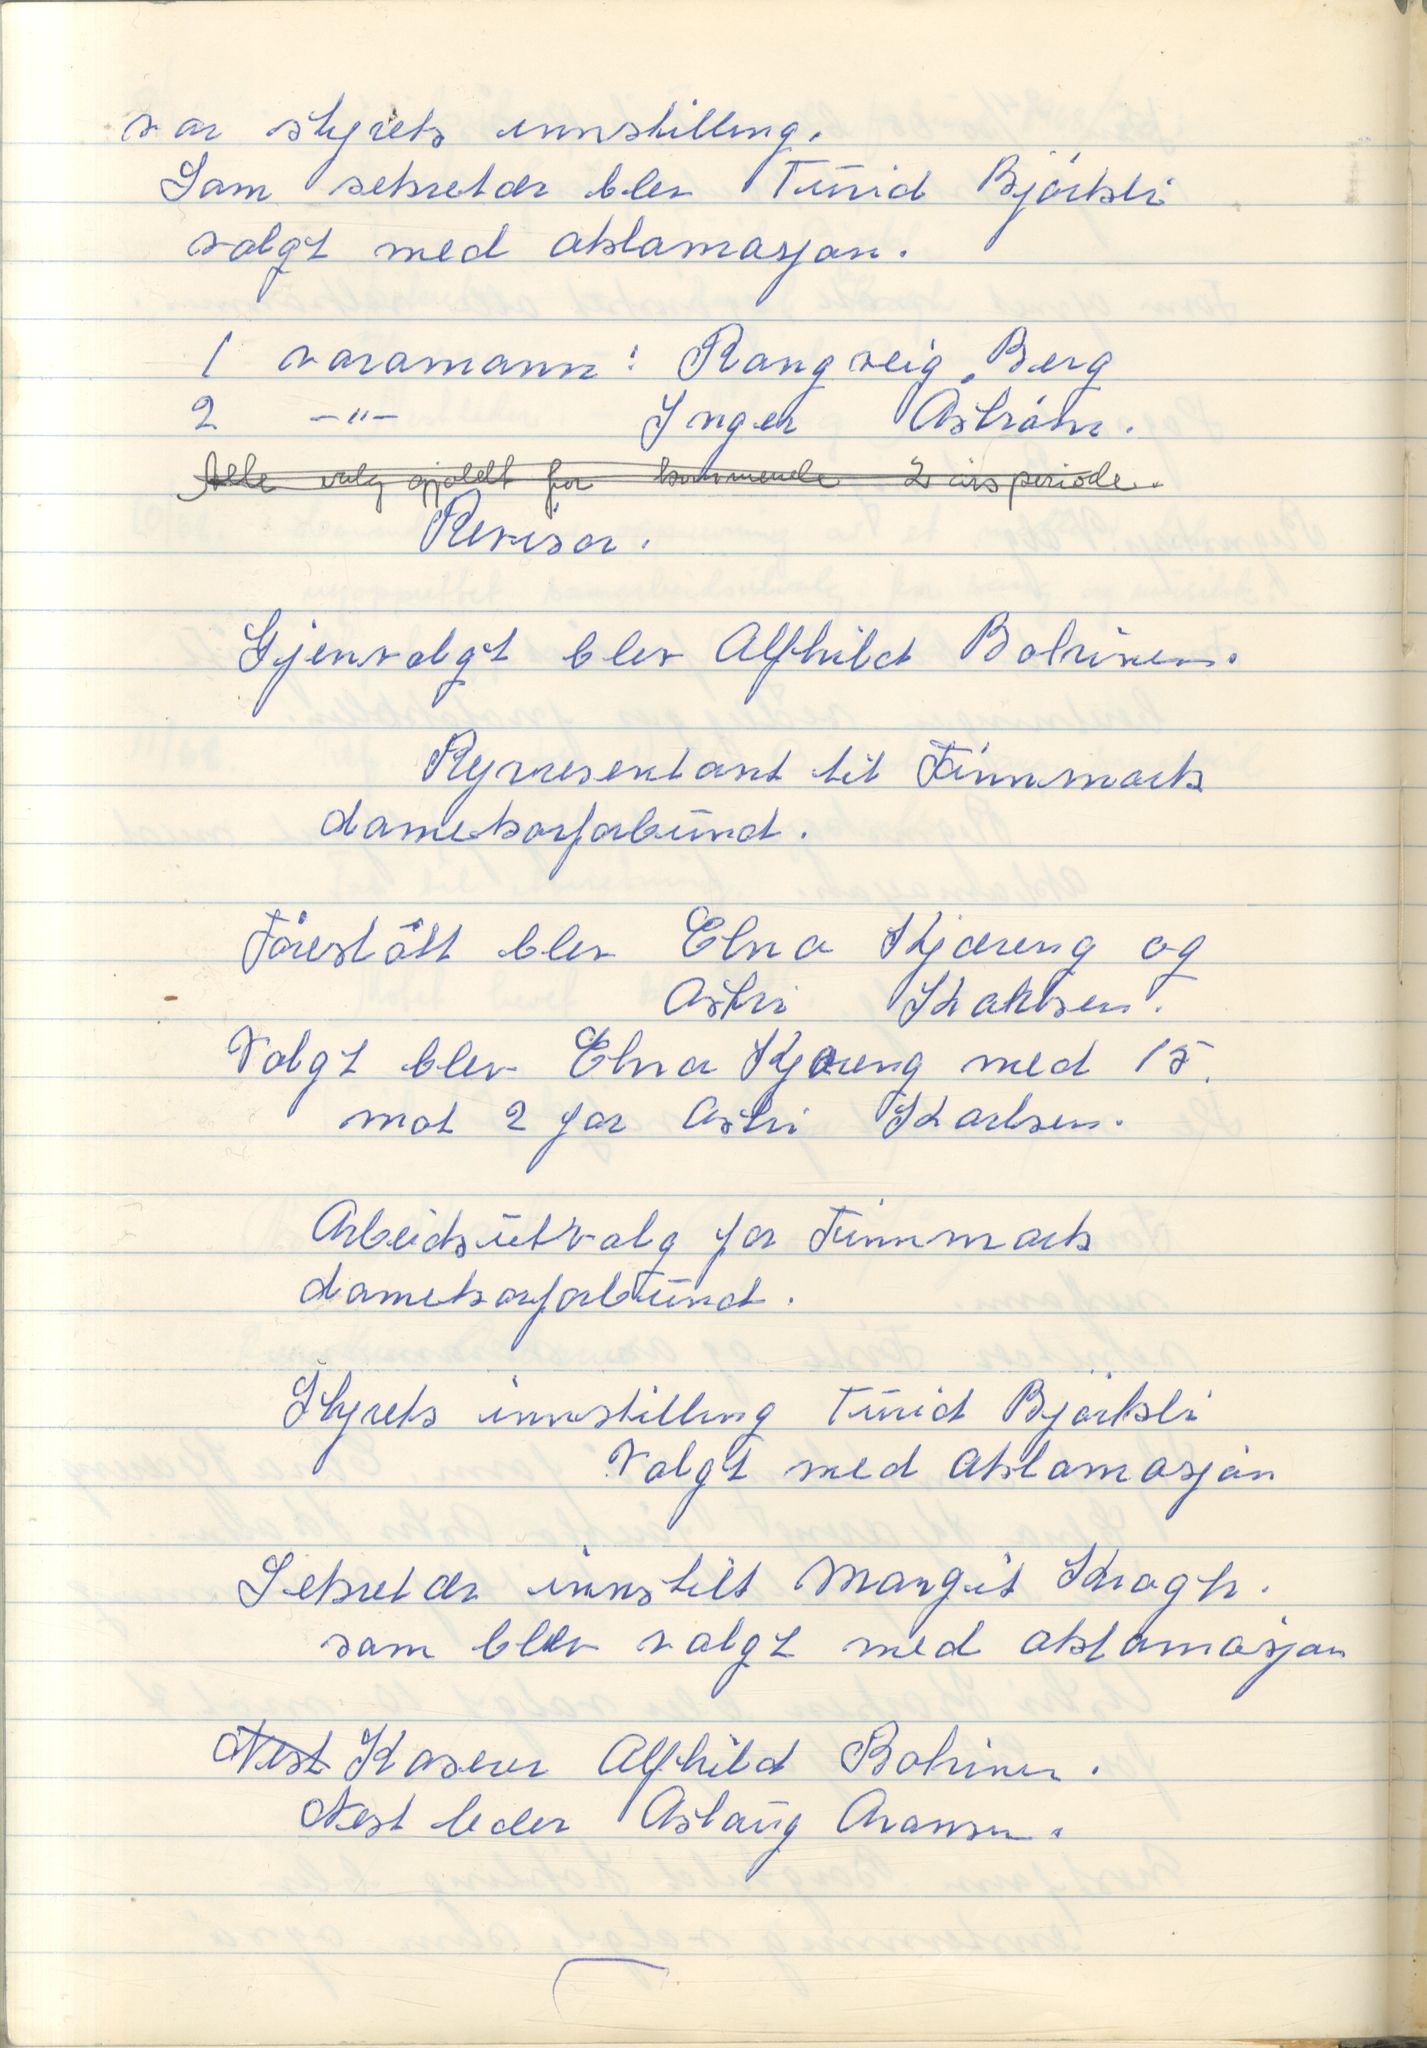 var styrets innstilling.
Som sekretær blev Turid Björkli
valgt med aklamasjon.
1 varamann: Rangveig Berg
2 -"- Inger Åström.
Alle valg gjaldt for kommende 2 års periode.
Revisor.
Gjenvalgt blev Alfhild Bohinen.
Representant til Finnmark
damekorforbund.
Föreslått blev Elna Kjæreng og
Astri Karlsen.
Valgt blev Elna Kjæreng med 15
mot 2 for Astri Karlsen.
Arbeidsutvalg for Finnmark
damekorforbund.
Styrets innstilling Turid Björkli
Valgt med aklamasjon
Sekretær innstilt Margit Krogh.
som blev valgt med aklamasjon
Nest Kaserer Alfhild Bohinen.
Nest leder Aslaug Aronsen.